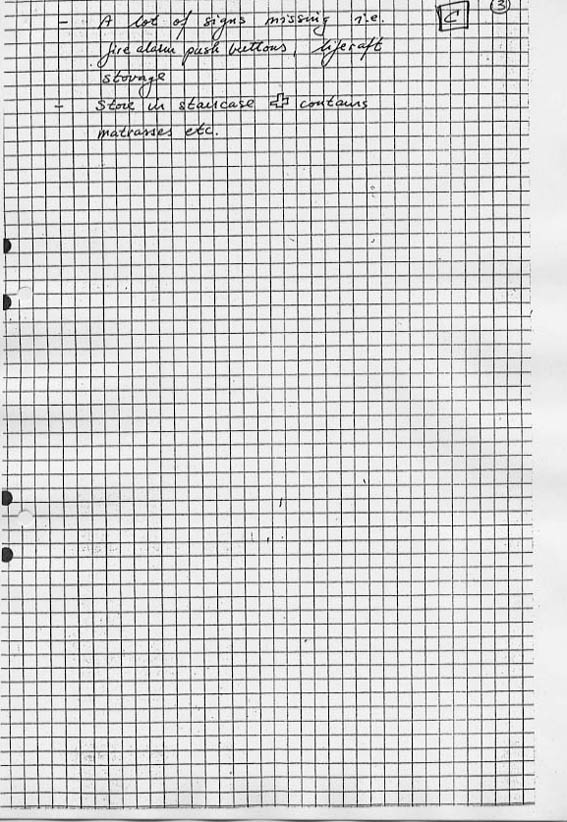 3
- A lot of signs missing i.e. C
fire alarm push buttons, liferaft
stovage
- Store in staircase contains
matrasses etc.